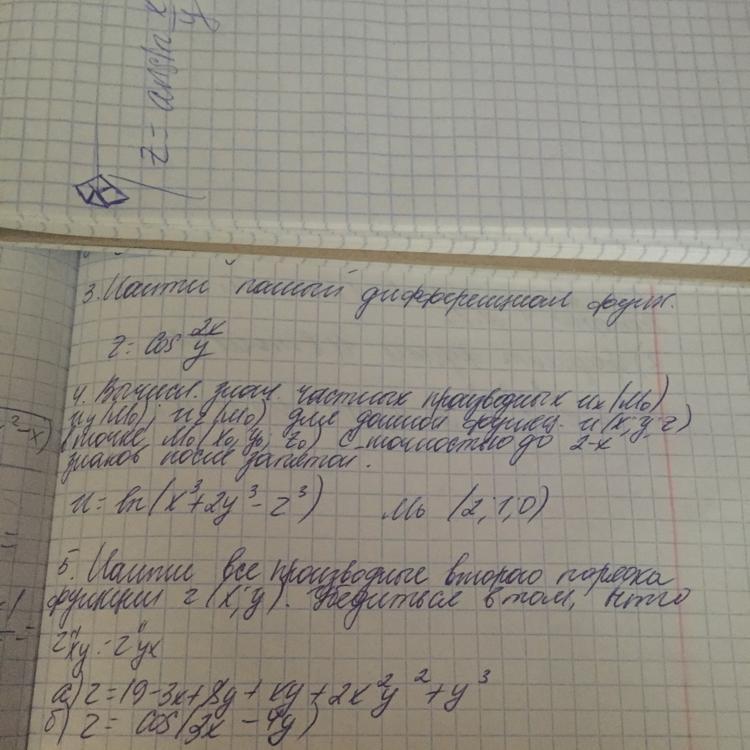 z = arcsin x/y
3. Найти полный дифференциал функ.
z = cos 2x/y
4. Вычисл. знач. частных производных u_x(M₀)
u_y(M₀); u_z(M₀) для данной функц. u(x; y; z)
(точке M₀(x₀; y₀; z₀) с точностью до 2-х
знаков после запятой.
u = ln(x³ + 2y³ - z³) M₀ (2; 1; 0)
5. Найти все производные второго порядка
функции z(x; y). Убедиться в том, что
z''xy = z''yx
а) z = 19 - 3x + 8y + xy + 2x²y² + y³
б) z = cos(3x - 4y)
²-x)